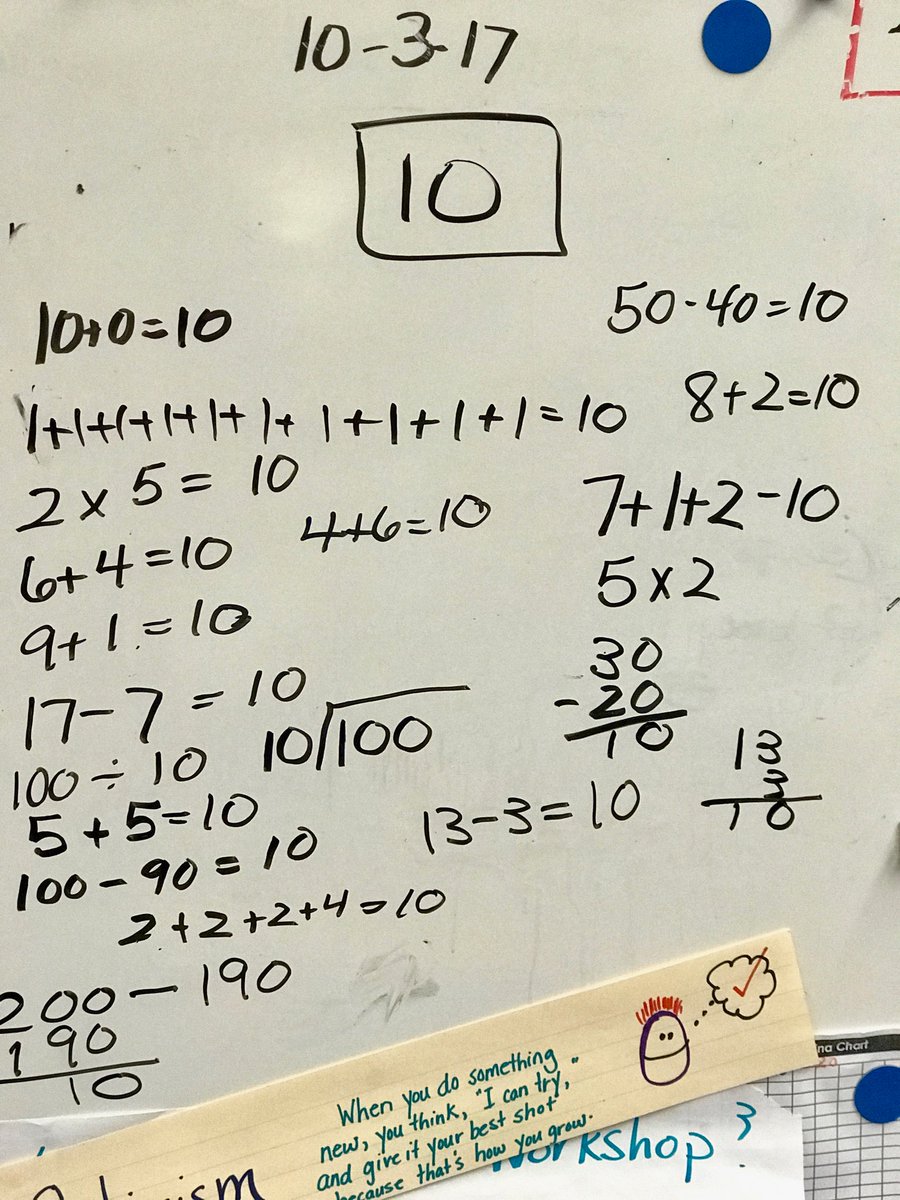 10-3-17
10
10+0=10
50-40=10
1+1+1+1+1+1+1+1+1+1=10
8+2=10
2×5=10
4+6=10
7+1+2-10
6+4=10
5×2
9+1=10
30
-20
10
17-7=10
10/100
13
3
10
100÷10
5+5=10
13-3=10
100-90=10
2+2+2+4=10
200-190
190
10
When you do something
new, you think, "I can try,"
and give it your best shot
because that's how you grow.
na Chart
Workshop 3